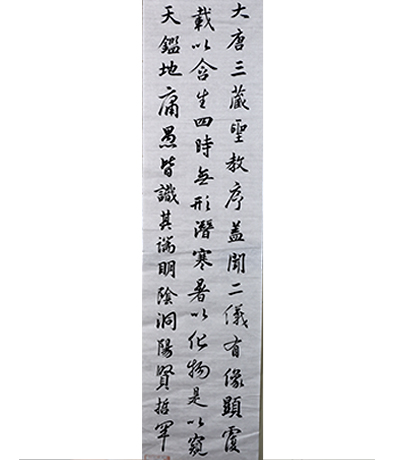 大唐三藏聖教序蓋聞二儀有像顯覆
載以含生四時無形潛寒暑以化物是以窺
天鑑地庸愚皆識其端明陰洞陽賢哲罕